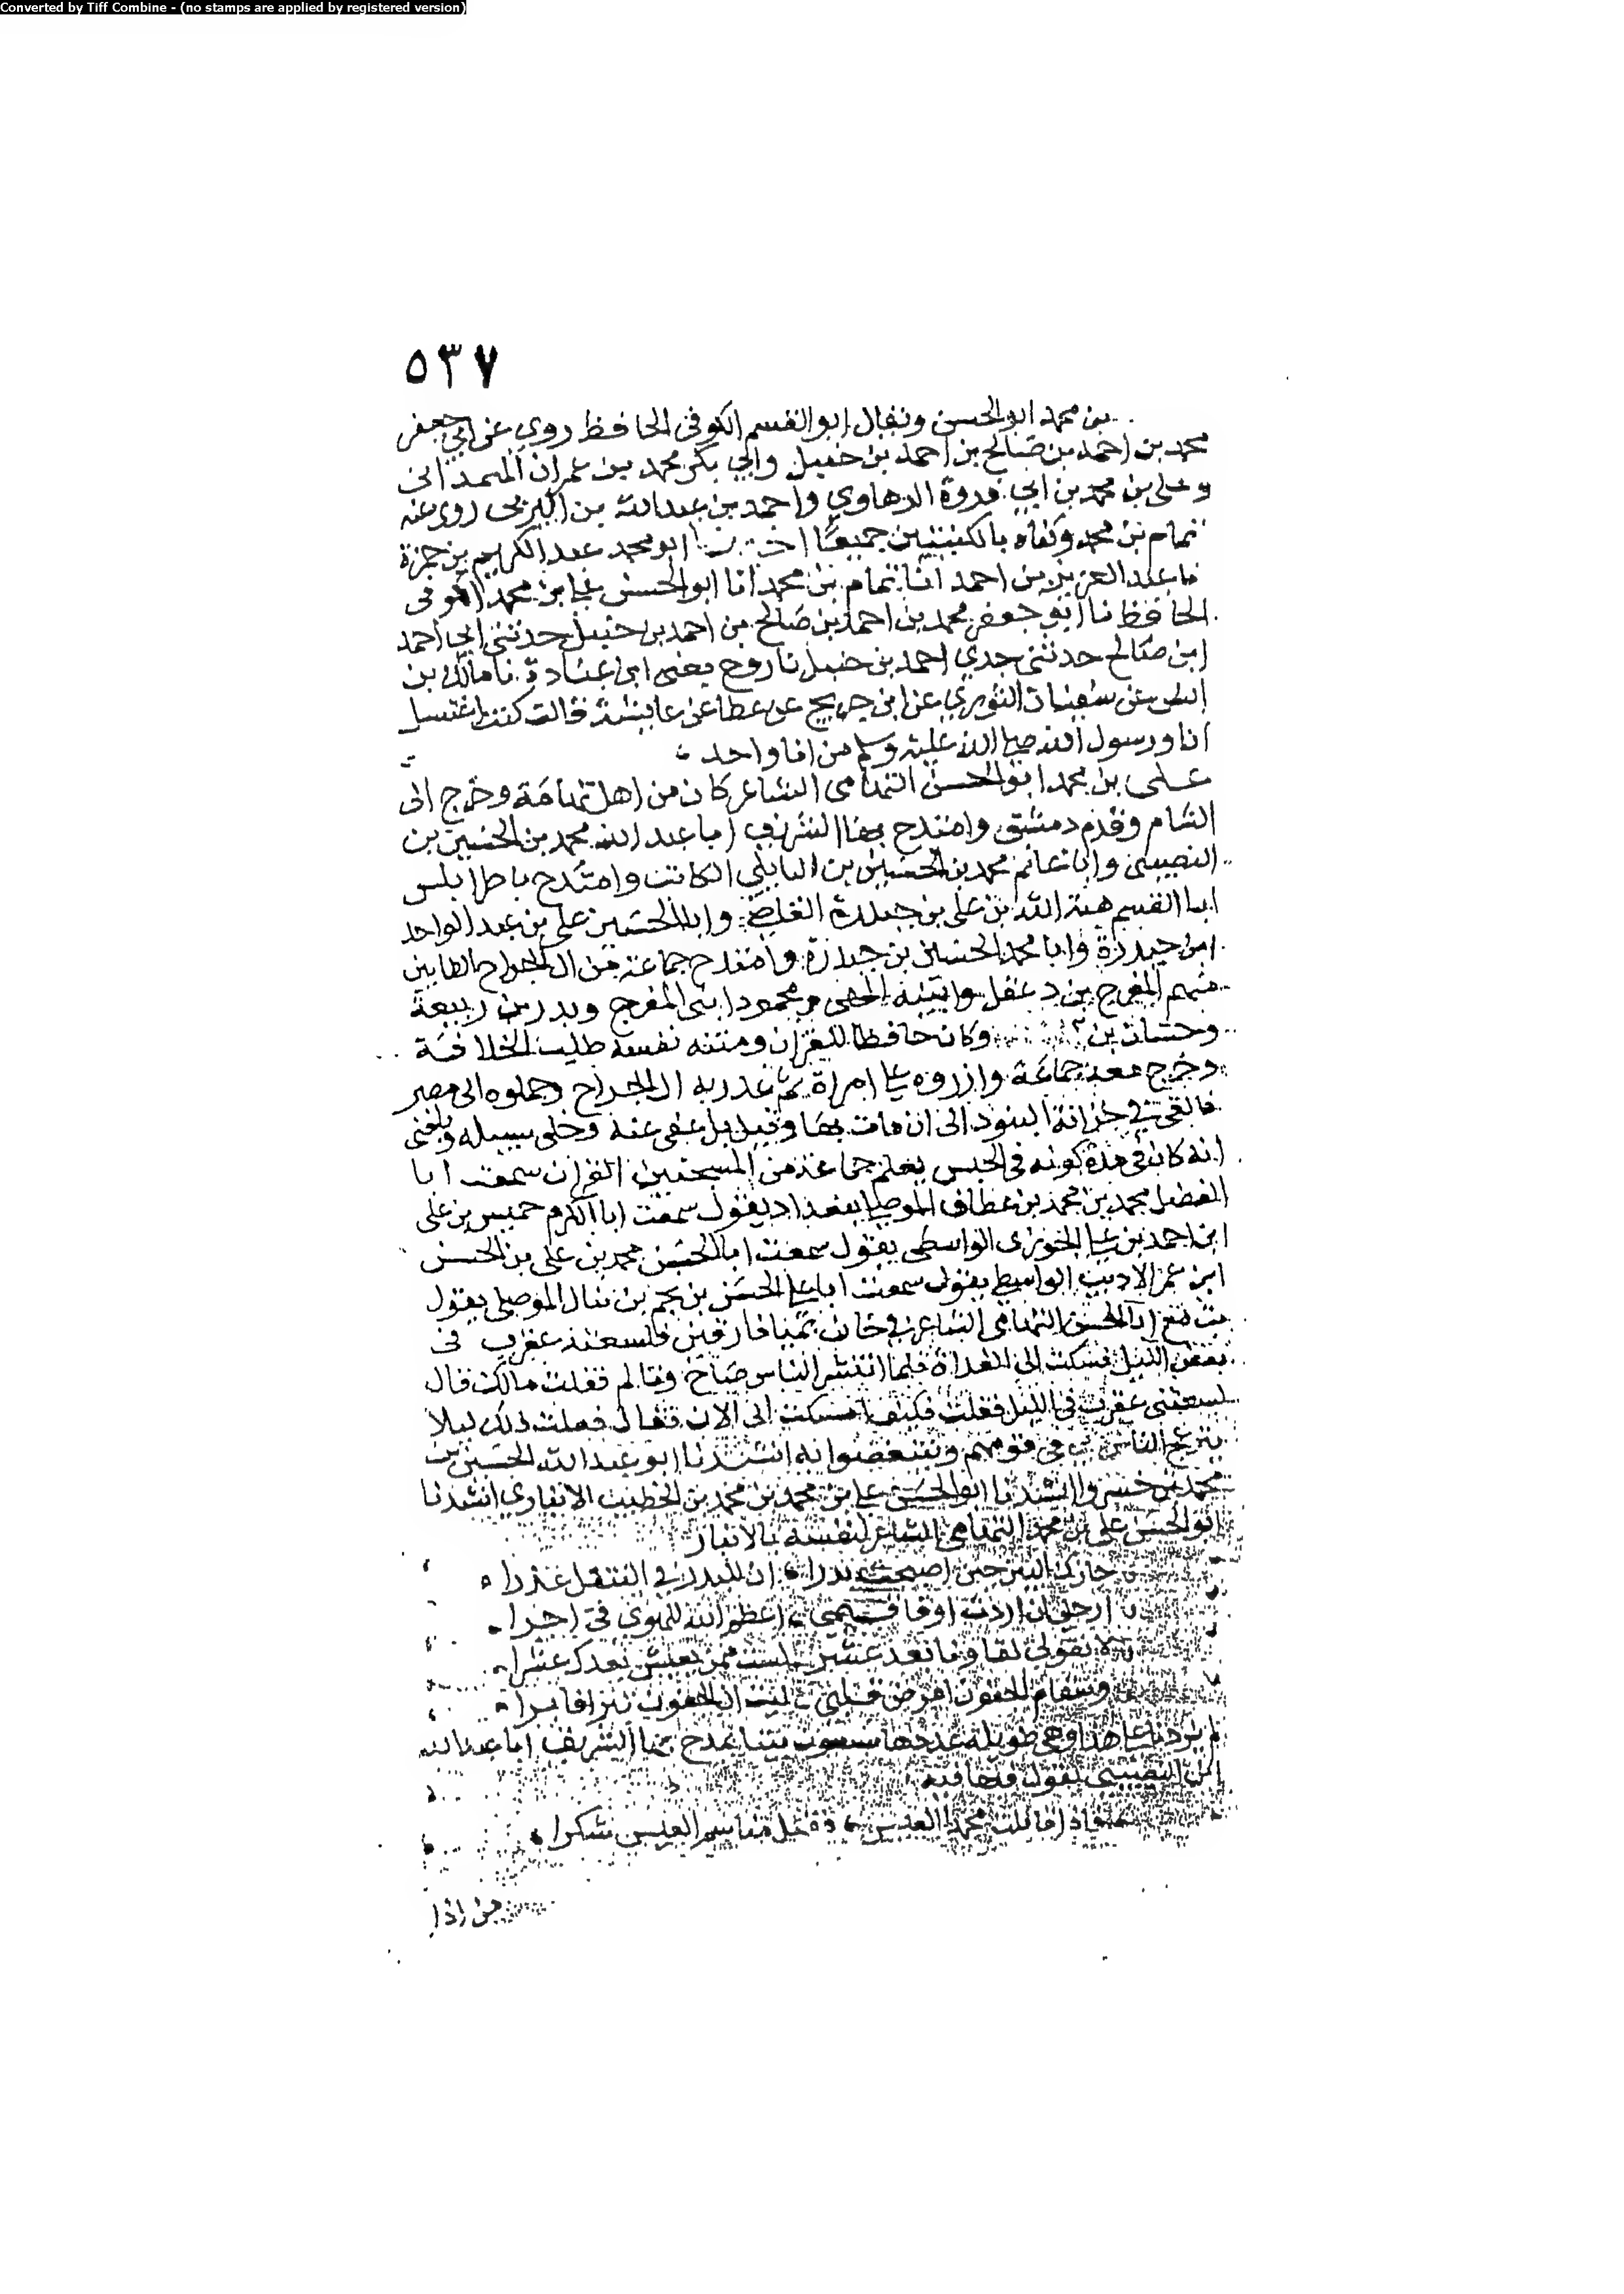 Converted by Tiff Combine - (no stamps are applied by registered version)
٥٣٧
بن محمد ابو الحسن ويقال ابو القسم الكوفى الحافظ روي عن ابي جعفر
محمد بن احمد بن صالح بن احمد بن حنبل وابي بكر محمد بن عمران الهمدانى
وعلى بن محمد بن ابي فروة الرهاوي واحمد بن عبد الله بن روى عنه
تمام بن محمد وكناه بالكنيتين جميعا ابو محمد عبد الكريم بن حمزة
نا عبد العزيز بن احمد انا تمام بن محمد انا ابو الحسن على بن محمد الكوفى
الحافظ نا ابو جعفر محمد بن احمد بن صالح بن احمد بن حنبل حدثنى ابي احمد
ابن صالح حدثنى جدي احمد بن حنبل نا روح يعنى ابن عبادة نا مالك بن
انس عن سفيان الثوري عن ابن جريج عن عطا عن عايشة قالت كنت اغتسل
انا ورسول الله صلى الله عليه وسلم من انا واحد
على بن محمد ابو الحسن التهامى الشاعر كان من اهل تهامة وخرج الى
الشام وقدم دمشق وامتدح بها الشريف ابا عبد الله محمد بن الحسين بن
النصيبى وابا غانم محمد بن الحسين بن الكاتب وامتدح باطرابلس
ابا القسم هبة الله بن على بن حيدرة وابا الحسين على بن عبد الواحد
ابن حيدرة وابا محمد الحسين بن حيدرة وامتدح جماعة من ال الجراح الطايين
منهم المفرج بن دغفل وابنيه ومحمود ابنى المفرج وبدر بن ربيعة
وحسان بن وكان حافظا للقران ومنته نفسه طلب الخلافة
وخرج معه جماعة وازروه على امراة ثم غدر به ال الجراح وحملوه الى مصر
فالقى في خزانة البنود الى ان مات بها وقيل بل عفى عنه وخلى سبيله وبلغنى
انه كان فى مدة كونه فى الحبس يعلم جماعة من المسجنين القران سمعت ابا
الفضل محمد بن محمد بن عطاف الموصلى ببغداد يقول سمعت ابا الكرم خميس بن على
ابن احمد بن على الحوزى الواسطى يقول سمعت ابا الحسن محمد بن على بن الحسن
ابن عمر الاديب الواسطى يقول سمعت ابا على الحسن بن بن الموصلى يقول
بت مع ابا الحسن التهامى الشاعر في خان بميافارقين فلسعته عقرب فى
بعض الليل فسكت الى الغداة فلما انتشر الناس صاح وتالم فقلت مالك قال
لسعتنى عقرب فى الليل فقلت فكيف امسكت الى الان فقال فعلت ذلك ليلا
ينزعج الناس بي فى نومهم وينغصوا به انشدنا ابو عبد الله الحسين بن
محمد بن خسروا انشدنا ابو الحسن على بن محمد بن محمد بن الخطيب الانباري انشدنا
ابو الحسن على بن محمد التهامى الشاعر لنفسه بالانبار
حازك البين حين اصبحت بدرا ان للبدر في التنقل عذرا
ارحلى ان اردت او فاقيمى اعظم الله للهوى فى اجرا
لا تقولى لقاونا بعد عشر لست ممن يعيش بعدك عشرا
وسقام الجفون امرض قلبى ليت ان الجفون تبرا فابرا
لم يزدنا على هذا وهى طويلة عددها ستون بيتا يمدح بها الشريف ابا عبد الله
ابن النصيبى يقول فيها فيه
اذا قابلت محمدا العيس فقبل مناسم العيس شكرا
من اذا